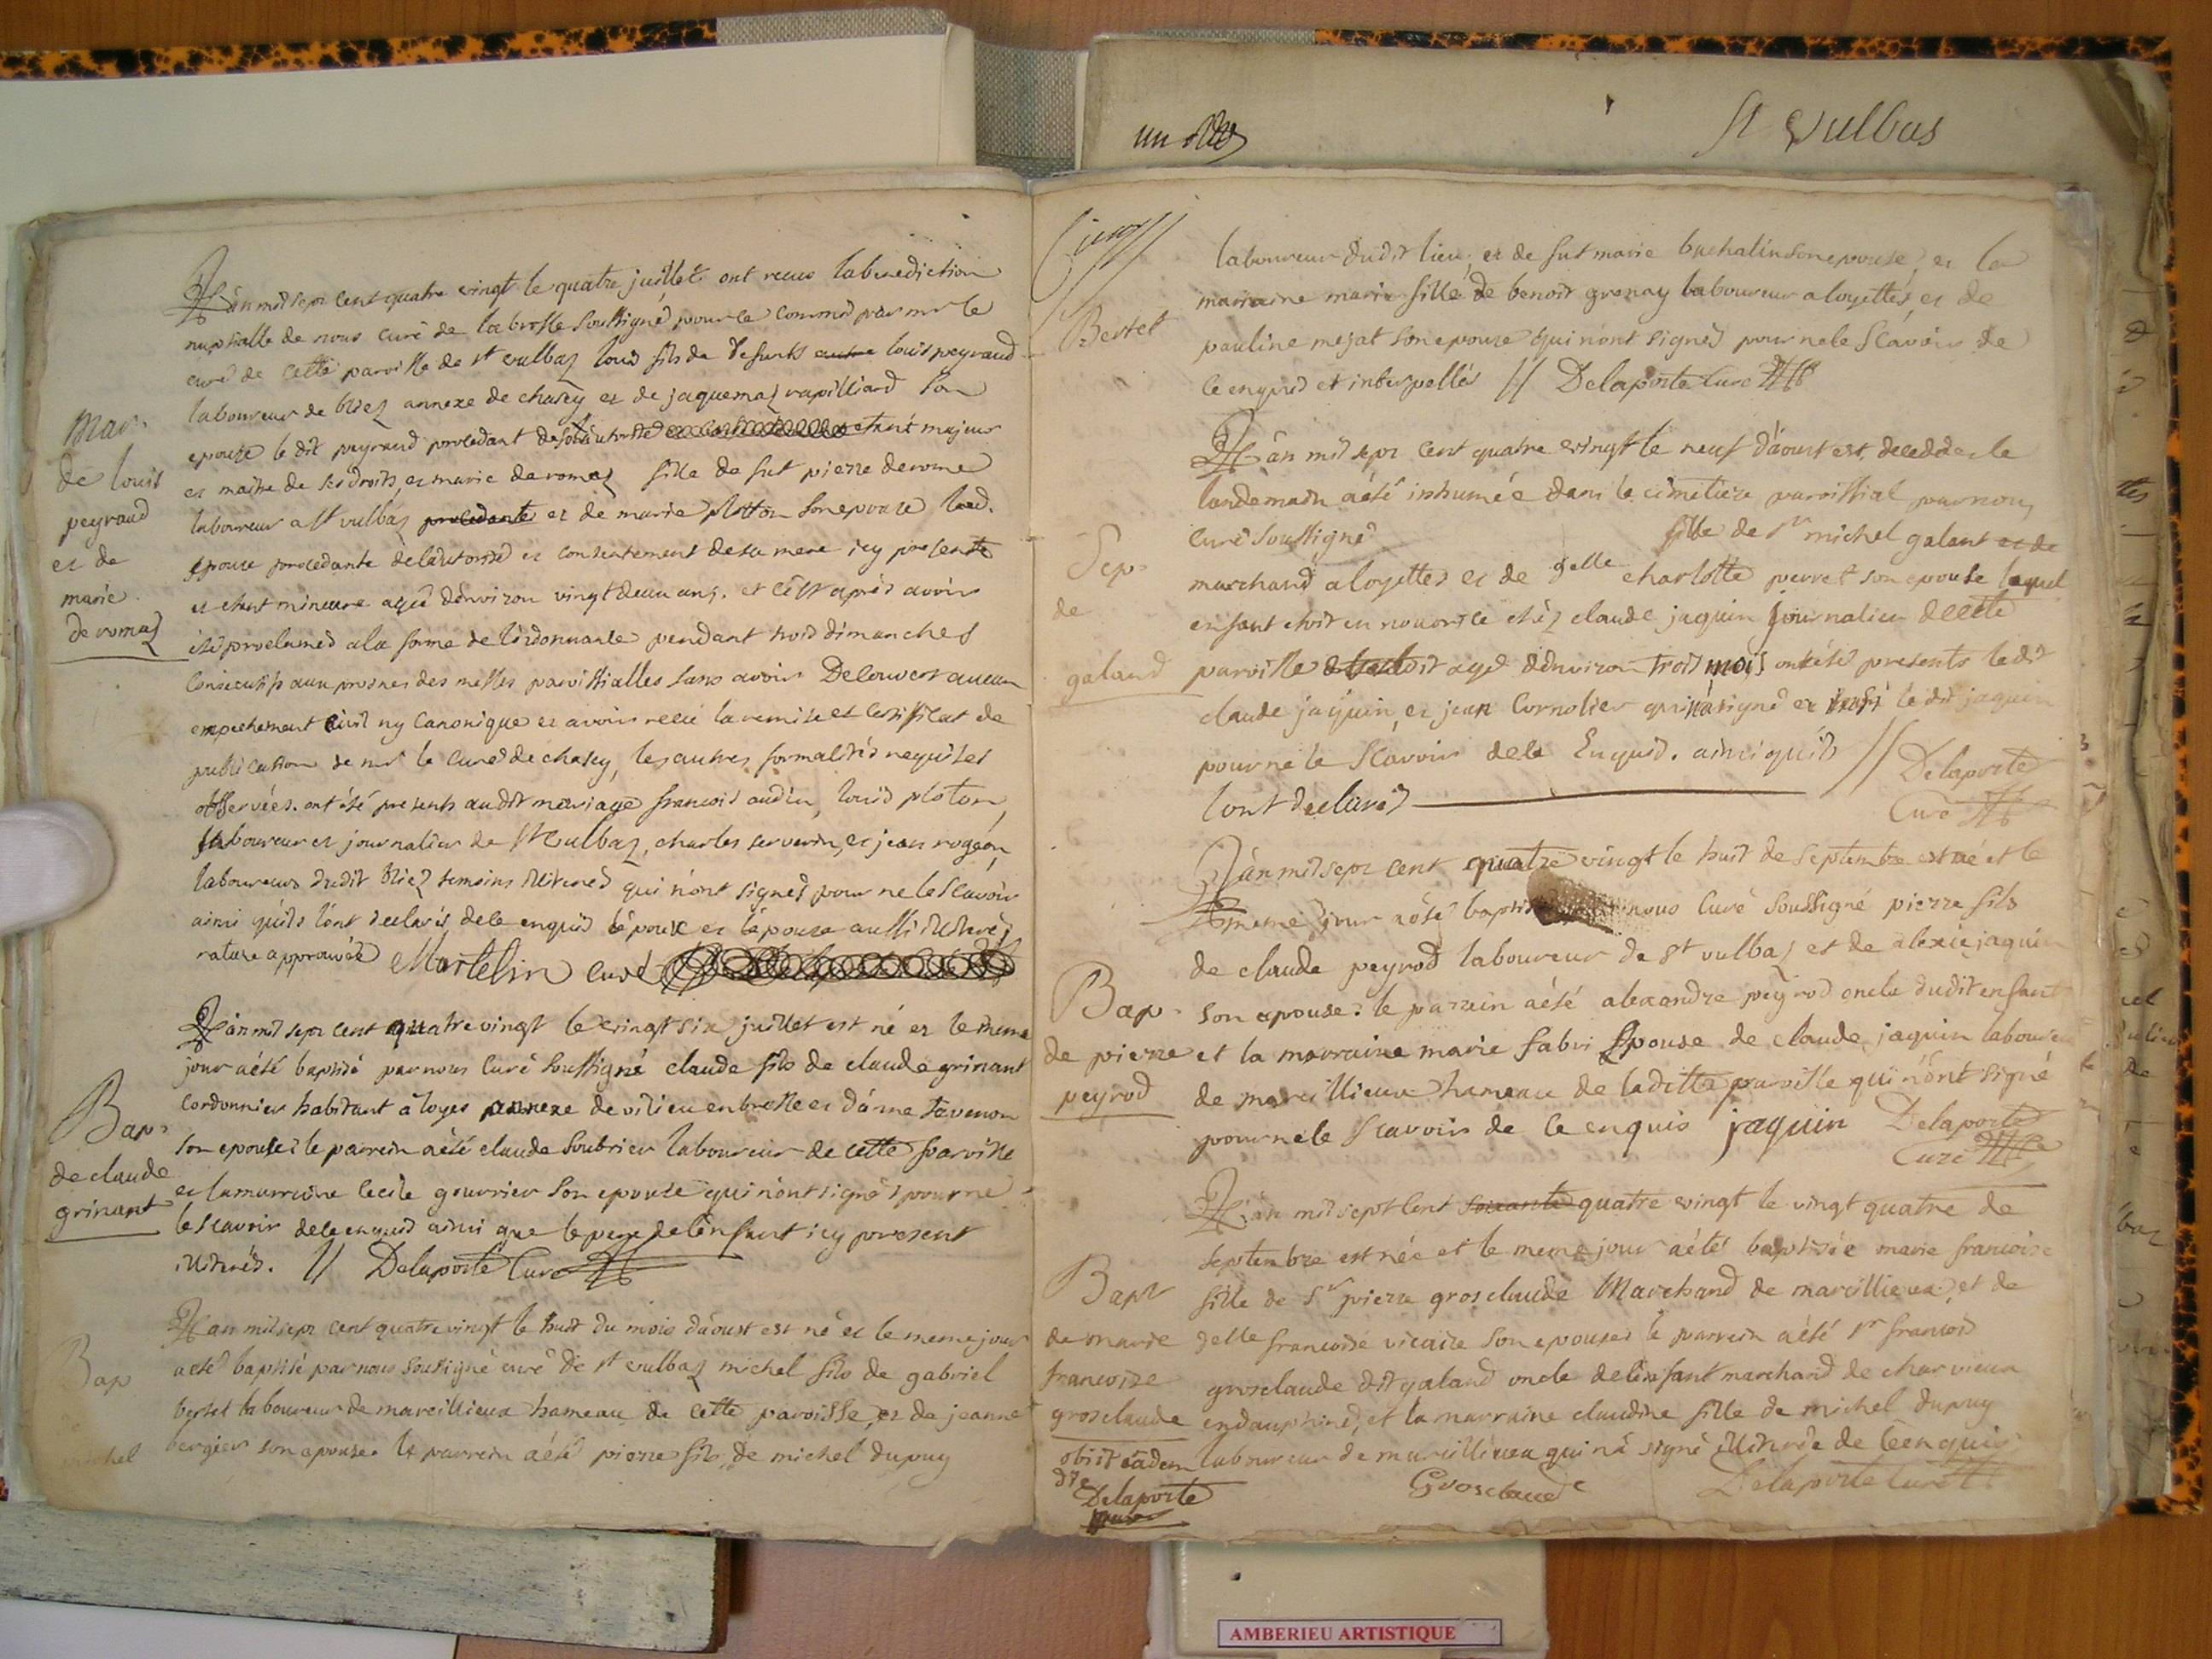 St Vulbas
L'an mil sept cent quatre vingt le quatre juillet ont reccu la benediction
nuptialle de nous curé de la brosse soussigné pour ce commis par mr le
curé de cette paroisse de st vulbaz louis fils de defunts louis peyraud
laboureur de bliez annexe de chasey et de jaquemaz rapilliard son
epouse le dit peyraud procedant de son autorité etant majeur
et maitre de ses droits, et marie deromaz fille de fut pierre derome
laboureur a st vulbaz procedante et de marie plotton son epouse lad.
epouse procedante de l'autorité et consentement de sa mere icy presente
et etant mineure agée d'environ vingt deux ans. et c'est après avoir
été proclamés a la forme de l'ordonnance pendant trois dimanches
consecutifs aux prosnes des messes paroissialles sans avoir decouvert aucun
empechement civil ny canonique et avoir recu la remise et certificat de
publication de mr le curé de chasey, les autres formalités requises
observées. ont été presents audit mariage francois audin, louis ploton,
laboureur et journalier de st vulbaz, charles serverin, et jean rogeon,
laboureurs dudit bliez temoins illiterés qui n'ont signés pour ne le scavoir
ainsi qu'ils l'ont declarés de ce enquis l'époux et l'épouse aussi illiterés
rature approuvée Martelin curé
Mar.
de louis
peyraud
et de
marie
deromaz
L'an mil sept cent quatre vingt le vingt six juillet est né et le meme
jour a été baptisé par nous curé soussigné claude fils de claude grinant
cordonnier habitant à loyes annexe de vilieu en bresse et d'anne tavenon
son epouse: le parrein a été claude soubrier laboureur de cette paroisse
et la marraine cecile gourrier son epouse qui n'ont signés pour ne
le scavoir de ce enquis ainsi que le pere de l'enfant icy present
illiterés. // Delaporte Curé
Bap.
de claude
grinant
L'an mil sept cent quatre vingt le huit du mois d'aoust est né et le meme jour
a été baptisé par nous soussigné curé de st vulbaz michel fils de gabriel
bertet laboureur de mareillieux hameau de cette paroisse, et de jeanne
bergier son epouse. le parrein a été pierre fils de michel dupuy
Bap
michel
Bertet
laboureur dudit lieu, et de fut marie buchalin son epouse, et la
marraine marie fille de benoit grenay laboureur a loyettes, et de
pauline mejat son epouse qui n'ont signés pour ne le scavoir de
ce enquis et interpellés // Delaporte Curé
L'an mil sept cent quatre vingt le neuf d'aoust est decedde et le
landemain a été inhumée dans le cimetiere paroissial par nous
curé soussigné fille de sr michel galant et de
marchand a loyettes et de delle charlotte perret son epouse lequel
enfant etoit en nourrice chéz claude jaquin journalier de cette
paroisse agé d'environ trois mois ont été presents ledit
claude jaquin, et jean cornolier qui n'a signé et ledit jaquin
pour ne le scavoir de ce enquis. ainsi qu'ils // Delaporte
l'ont declarés Curé
Sep.
de
galand
L'an mil sept cent quatre vingt le huit de septembre est né et le
meme jour a été nous curé soussigné pierre fils
de claude peyrod laboureur de st vulbaz et de alexie jaquin
son epouse: le parrain a été alexandre peyrod oncle dudit enfant
et la marraine marie fabri epouse de claude jaquin laboureur
de mareillieux hameau de la ditte paroisse qui n'ont signé
pour ne le scavoir de ce enquis jaquin Delaporte
Curé
Bap.
de pierre
peyrod
L'an mil sept cent soixante quatre vingt le vingt quatre de
septembre est née et le meme jour a été baptisée marie francoise
fille de sr pierre grosclaude Marchand de mareillieux, et de
delle francoise vicaire son epouse: le parrein a été sr francois
grosclaude dit galand oncle de l'enfant marchand de charvieux
en dauphiné, et la marraine claudine fille de michel dupuy
laboureur de mareillieux qui n'a signé illiterée de ce enquis
Grosclaude Delaporte Curé
Bapt
de marie
francoise
grosclaude
obiit eadem
die
Delaporte
AMBERIEU ARTISTIQUE